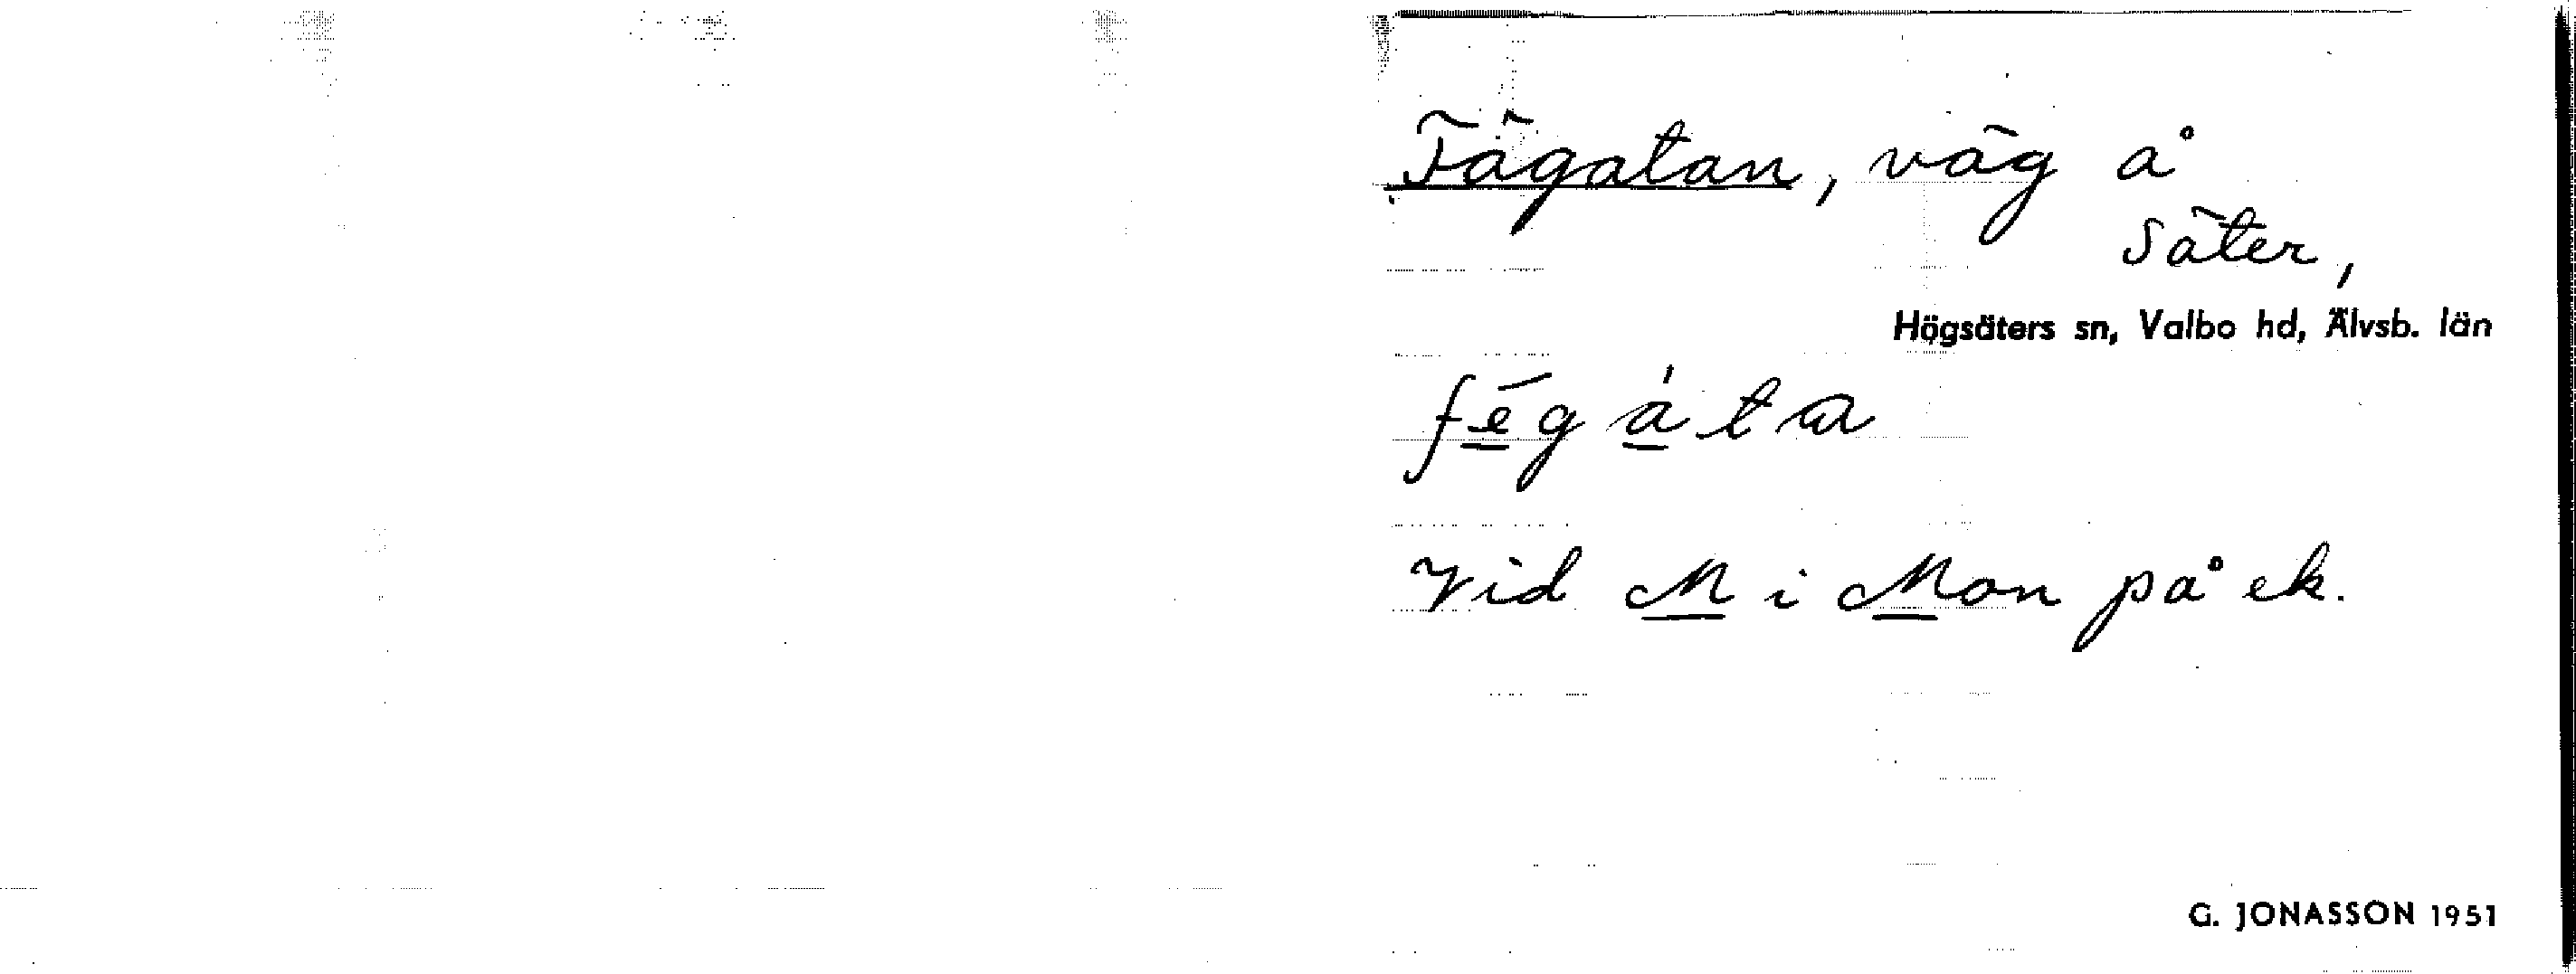 Fägatan, väg å
Säter,
Högsäters sn, Valbo hd, Älvsb. län
fe̱ga̱ta
Vid M i Mon på ek.
G. JONASSON 1951